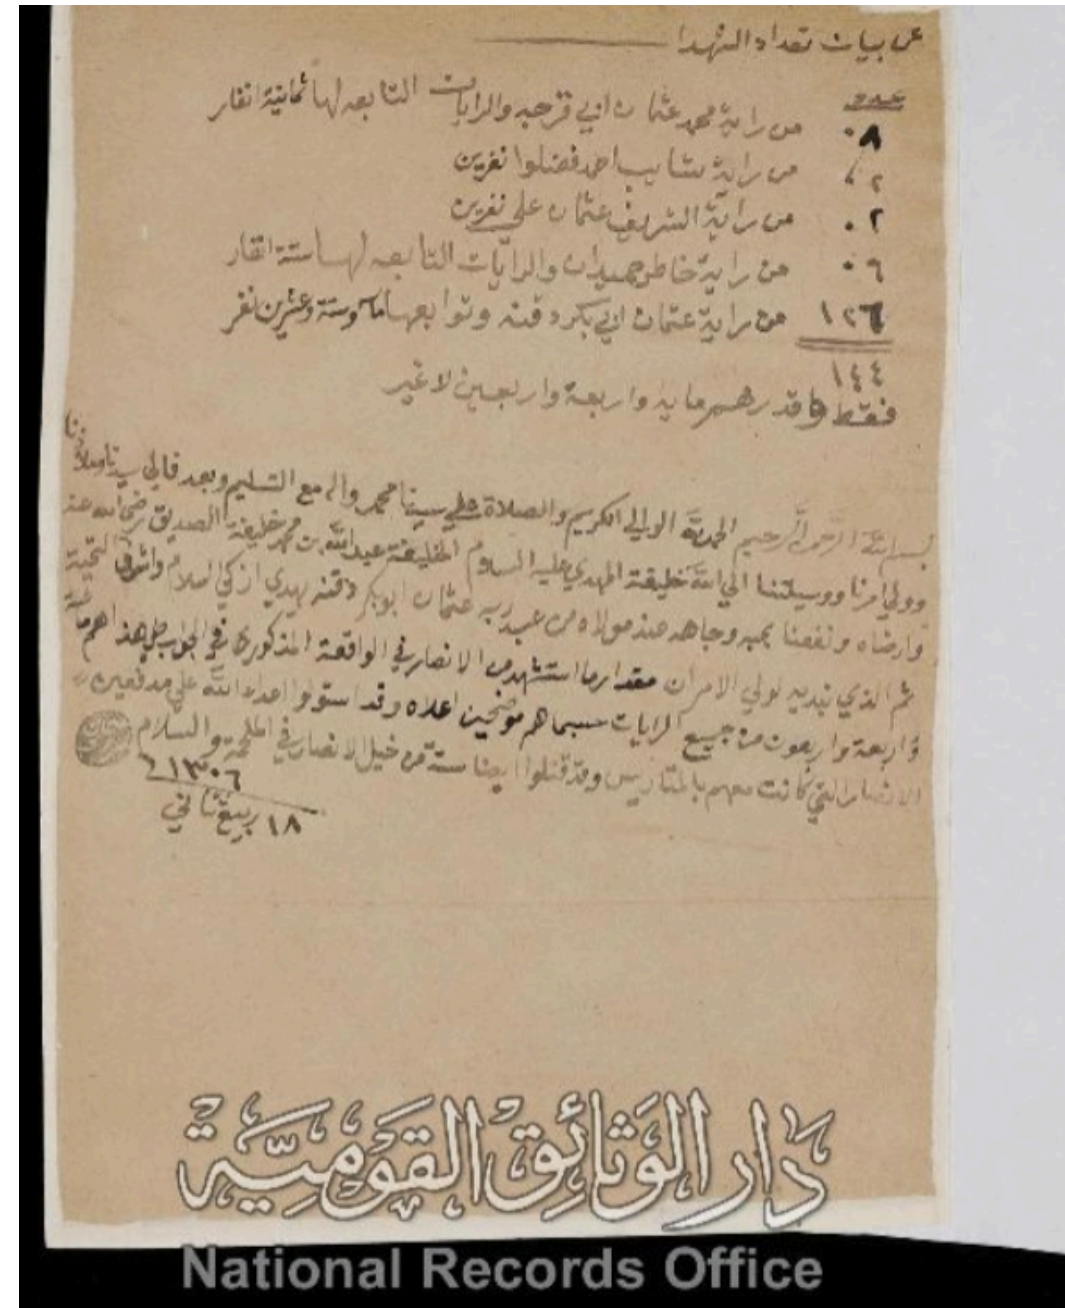 عن بيان تعداد الشهدا
عدد
٠٨ من راية محمد عثمان ابي قرجه والرايات التابعه لها ثمانية انفار
٠٢ من راية شايب احمد فضلوا نفرين
٠٢ من راية الشريف عثمان علي نفرين
٠٦ من راية خاطر حميدان والرايات التابعه لها ستة انفار
١٢٦ من راية عثمان ابي بكر دقنه وتوابعها وستة وعشرين نفر
١٤٤
فقط وقدرهم مايه واربعة واربعين لا غير
بسم الله الرحمن الرحيم الحمد لله الوالي الكريم والصلاة علي سيدنا محمد واله مع التسليم وبعد فالي سيدنا وملاذنا
وولي امرنا ووسيلتنا الي الله خليفة المهدي عليه السلام الخليفة عبد الله بن محمد خليفة الصديق رضي الله عنه
وارضاه ونفعنا بحبه وجاهه عند مولاه من عبد ربه عثمان ابوبكر دقنه يهدي ازكي السلام واشرف التحية
ثم الذي نبديه لولي الامر ان مقدار ما استشهد من الانصار في الواقعة المذكورة في الجواب هذا هم مائة
واربعة واربعون من جميع الرايات حسبما هم موضحين اعلاه وقد استولوا اعداء الله علي مدفعين
الانصار التي كانت معهم بالمتاريس وقد قتلوا ايضا ستة من خيل الانصار في الملحمة والسلام
١٣٠٦
١٨ ربيع ثاني
دار الوثائق القومية
National Records Office